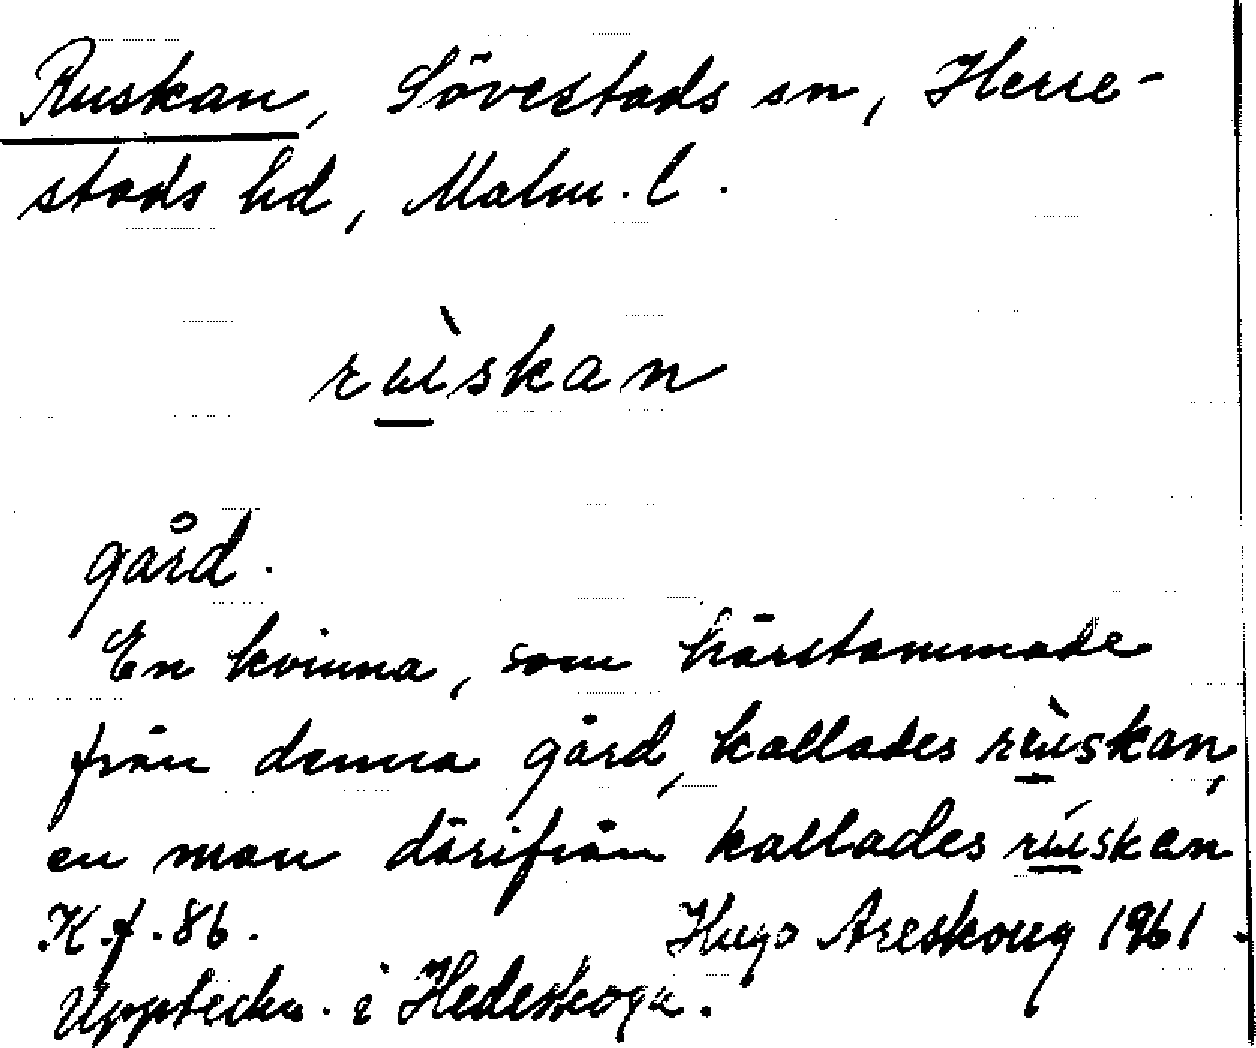 Ruskan, Sövestads sn, Herre-
stads hd, Malm. l.
rúskan
gård.
En kvinna, som härstammade
från denna gård, kallades
en man därifrån kallades
K. f. 86. Hugo Areskoug 1961.
Uppteckn. i Hedeskoga.